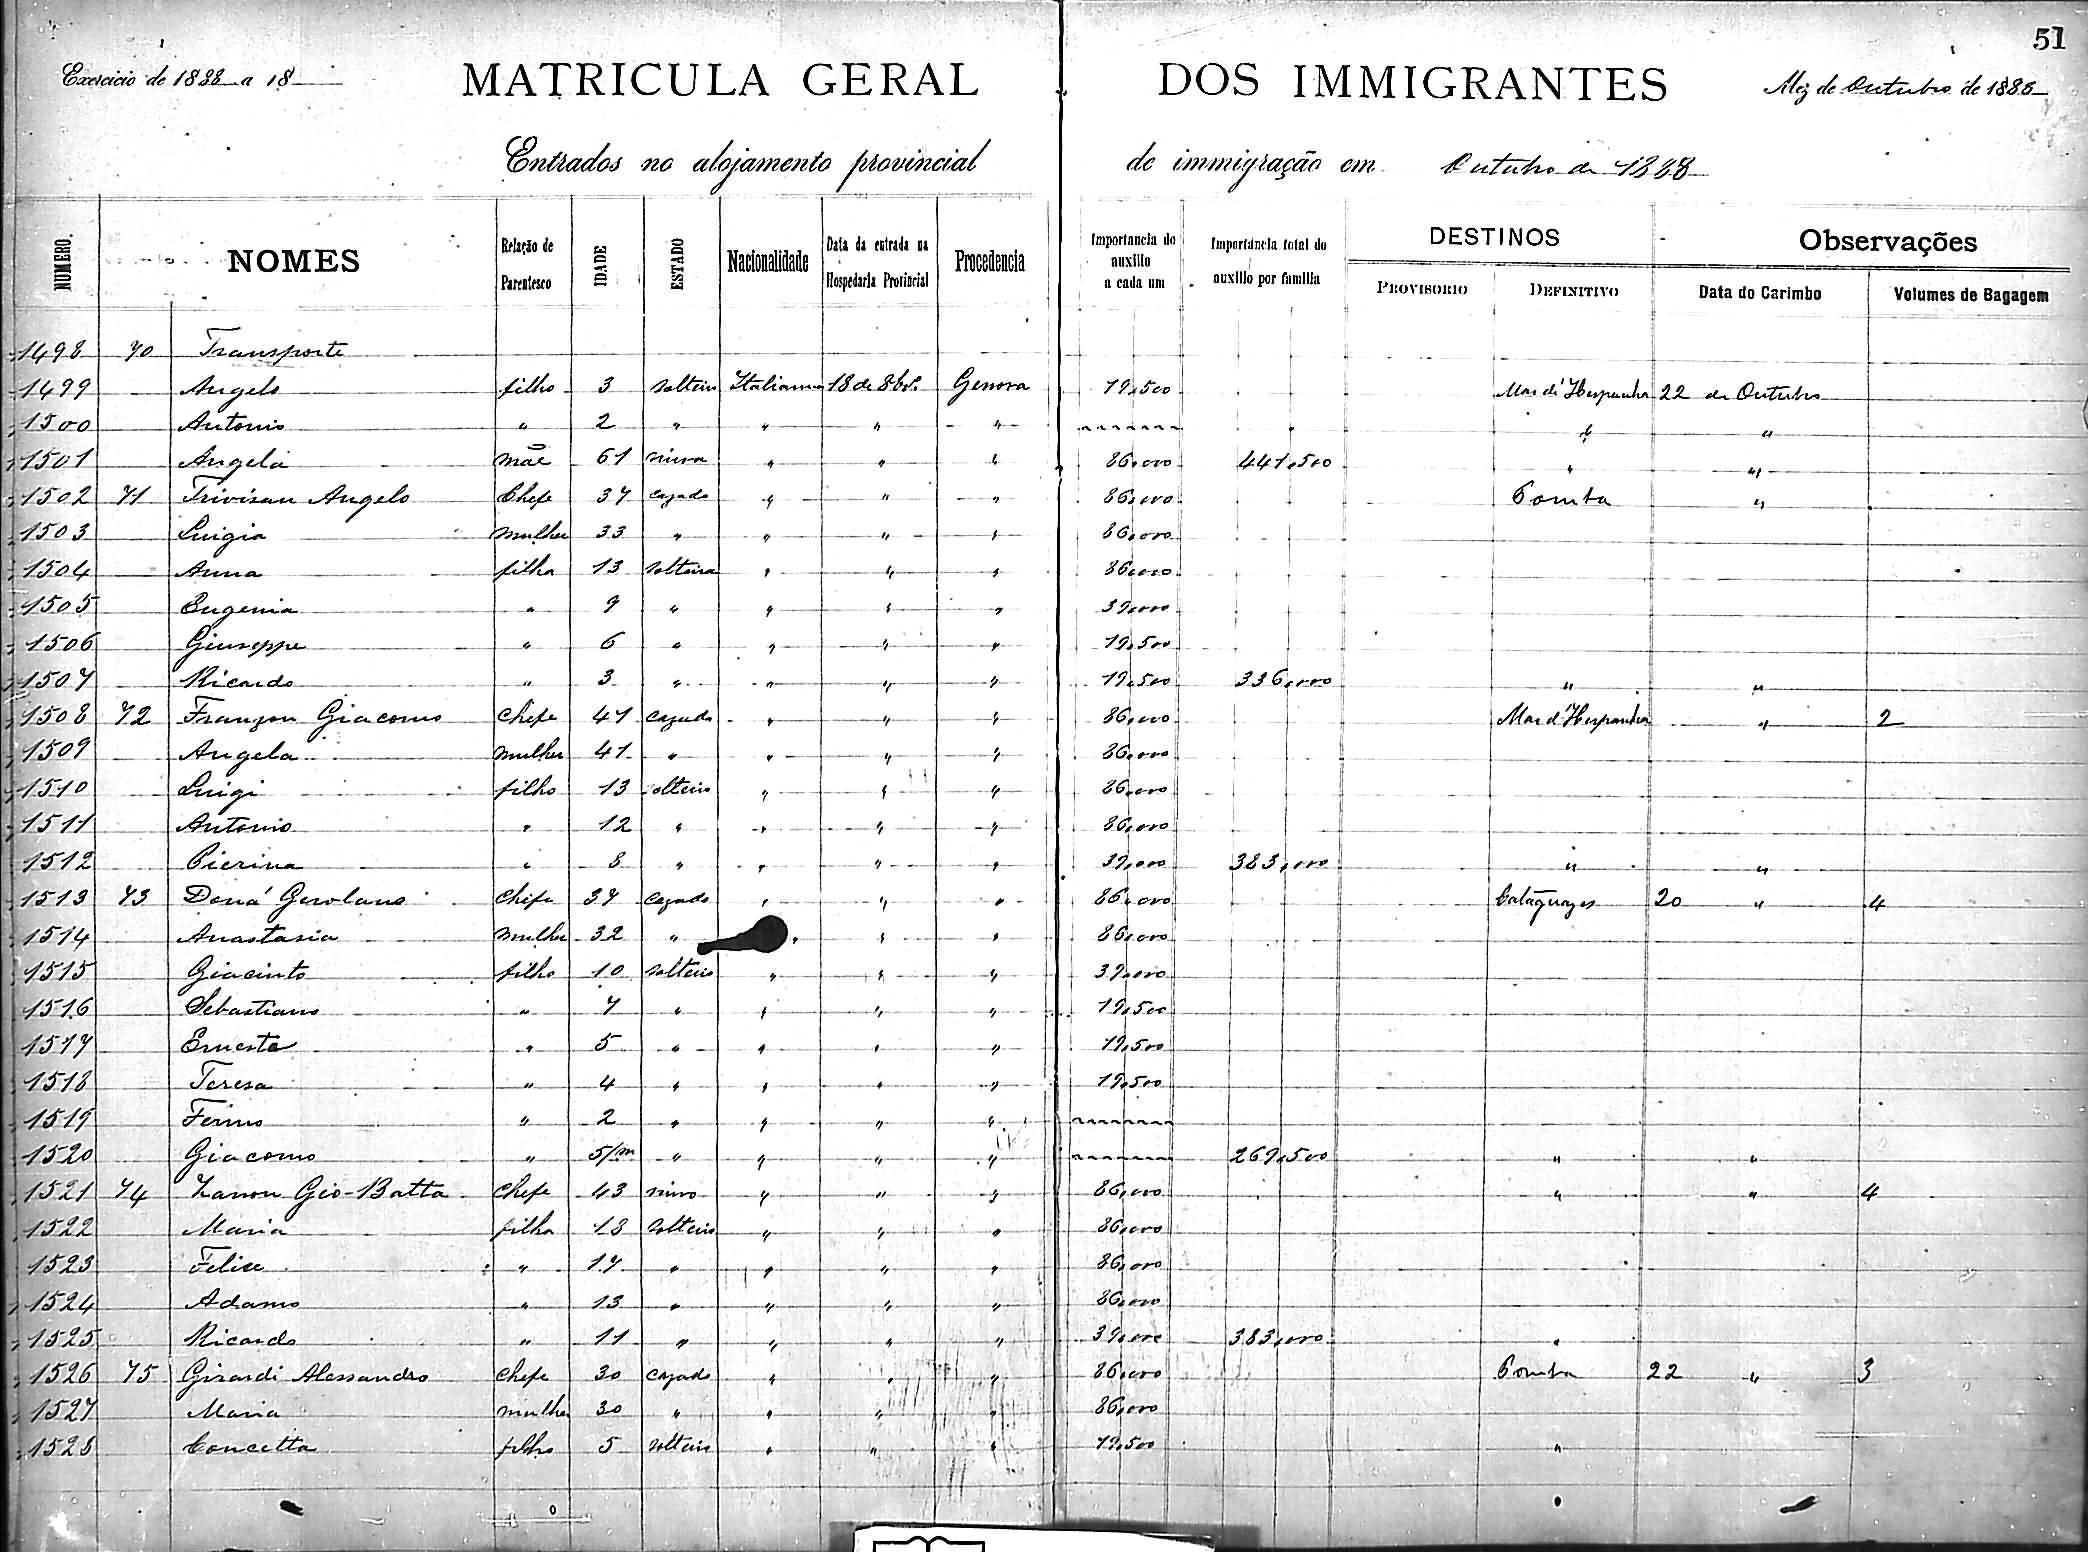 51
Exercicio de 1888 a 18
MATRICULA GERAL DOS IMMIGRANTES
Mez de Outubro de 1888
Entrados no alojamento provincial de immigração em Outubro de 1888
NUMERO. NOMES Relação de Parentesco IDADE ESTADO Nacionalidade Data da entrada na Hospedaria Provincial Procedencia Importancia do auxilio a cada um Importancia total do auxilio por familia DESTINOS PROVISORIO DEFINITIVO Observações Data do Carimbo Volumes de Bagagem
1498 70 Transporte
1499 Angelo filho 3 solteiro Italiana 18 de 8bro. Genova 19,500 Mar d'Hespanha 22 de Outubro
1500 Antonio " 2 " " " " " "
1501 Angela mãe 61 viuva " " " 86,000 441,500 " "
1502 71 Trivisan Angelo Chefe 37 cazado " " " 86,000 Pomba "
1503 Luigia mulher 33 " " " " 86,000
1504 Anna filha 13 solteira " " " 86,000
1505 Eugenia " 9 " " " " 39,000
1506 Giuseppe " 6 " " " " 19,500
1507 Ricardo " 3 " " " " 19,500 336,000 " "
1508 72 Franzon Giacomo chefe 41 cazado " " " 86,000 Mar d'Hespanha " 2
1509 Angela mulher 41 " " " " 86,000
1510 Luigi filho 13 solteiro " " " 86,000
1511 Antonio " 12 " " " " 86,000
1512 Pierina " 8 " " " " 39,000 383,000 " "
1513 73 Doná Gerolamo chefe 37 cazado " " " 86,000 Cataguazes 20 " 4
1514 Anastasia mulher 32 " " " " 86,000
1515 Giacinto filho 10 solteiro " " " 39,000
1516 Sebastiano " 7 " " " " 19,500
1517 Ernesta " 5 " " " " 19,500
1518 Teresa " 4 " " " " 19,500
1519 Fermo " 2 " " " "
1520 Giacomo " 5/m " " " " 269,500 " "
1521 74 Zanon Gio-Batta chefe 43 viuvo " " " 86,000 " " 4
1522 Maria filha 18 solteiro " " " 86,000
1523 Felice " 17 " " " " 86,000
1524 Adamo " 13 " " " " 86,000
1525 Ricardo " 11 " " " " 39,000 383,000 "
1526 75 Girardi Alessandro chefe 30 cazado " " " 86,000 Pomba 22 " 3
1527 Maria mulher 30 " " " " 86,000
1528 Concetta filho 5 solteiro " " " 19,500 "